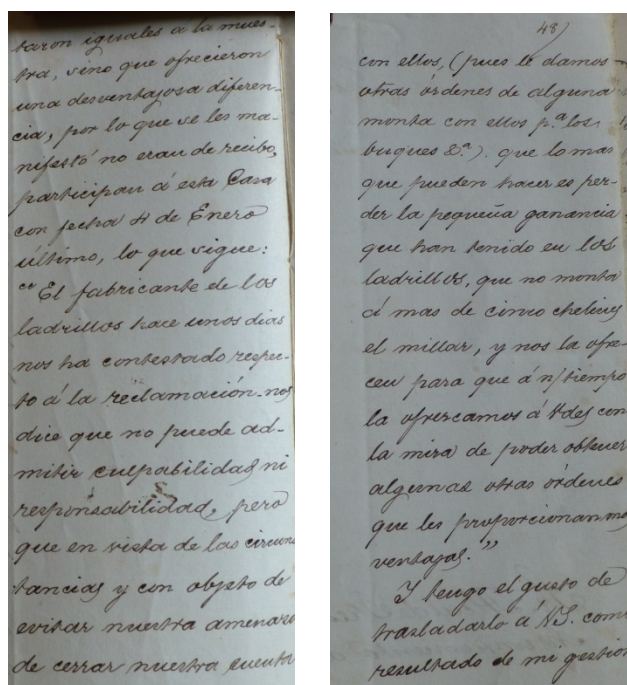 taron iguales a la mues-
tra, sino que ofrecieron
una desventajosa diferen-
cia, por lo que se les ma-
nifestó no eran de recibo,
participan á esta Casa
con fecha 4 de Enero
último, lo que sigue:
"El fabricante de los
ladrillos hace unos dias
nos ha contestado respec-
to á la reclamación. nos
dice que no puede ad-
mitir culpabilidad ni
responsabilidad, pero
que en vista de las circuns
tancias y con objeto de
evitar nuestra amenaza
de cerrar nuestra cuenta
48)
con ellos, (pues le damos
otras órdenes de alguna
monta con ellos p.ª los
buques &.ª). que lo mas
que pueden hacer es per-
der la pequeña ganancia
que han tenido en los
ladrillos, que no monta
á mas de cinco chelines
el millar, y nos la ofre-
cen para que á n/ tiempo
la ofrezcamos á Vdes con
la mira de poder obtener
algunas otras órdenes
que les proporcionan mas
ventajas."
Y tengo el gusto de
trasladarlo á VS. como
resultado de mi gestion